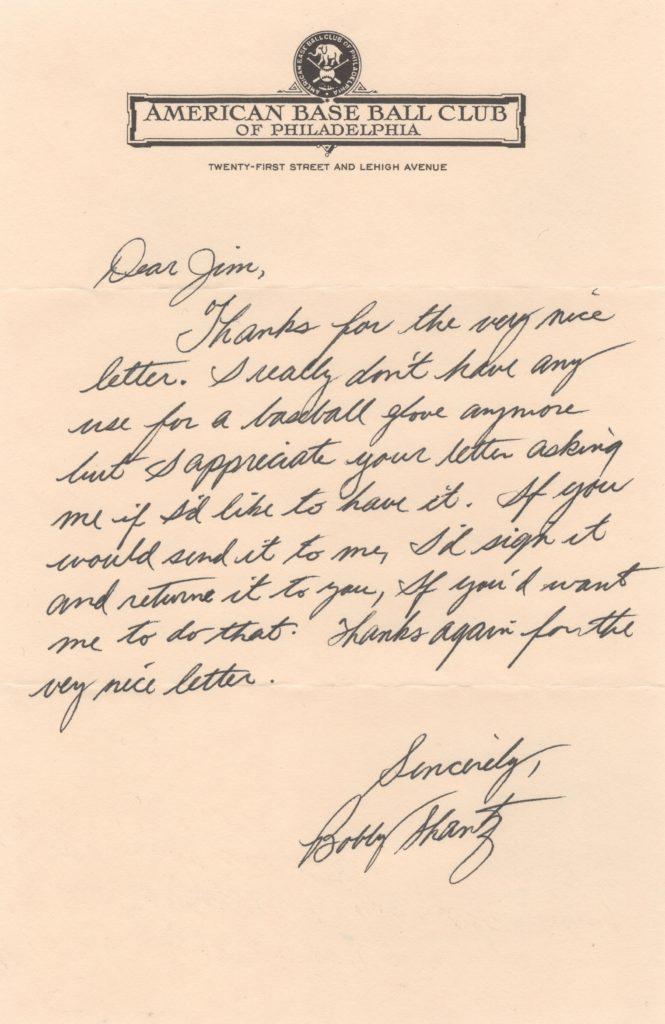 AMERICAN BASE BALL CLUB OF PHILADELPHIA
AMERICAN BASE BALL CLUB
OF PHILADELPHIA
TWENTY-FIRST STREET AND LEHIGH AVENUE
Dear Jim,
Thanks for the very nice
letter. I really don't have any
use for a baseball glove anymore
but I appreciate your letter asking
me if I'd like to have it. If you
would send it to me, I'd sign it
and returne it to you, If you'd want
me to do that. Thanks again for the
very nice letter.
Sincerely,
Bobby Shantz